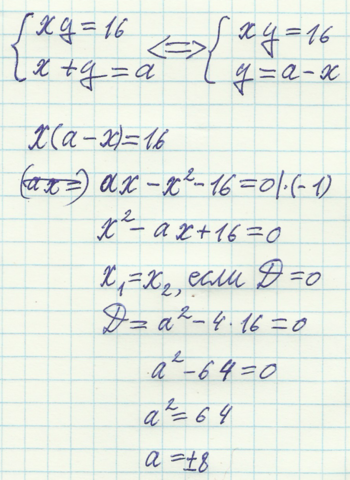 { xy = 16 <=> { xy = 16
{ x + y = a { y = a - x
x(a-x)=16
(ax=) ax - x² - 16 = 0 |·(-1)
x² - ax + 16 = 0
x₁ = x₂, если D = 0
D = a² - 4·16 = 0
a² - 64 = 0
a² = 64
a = ±8